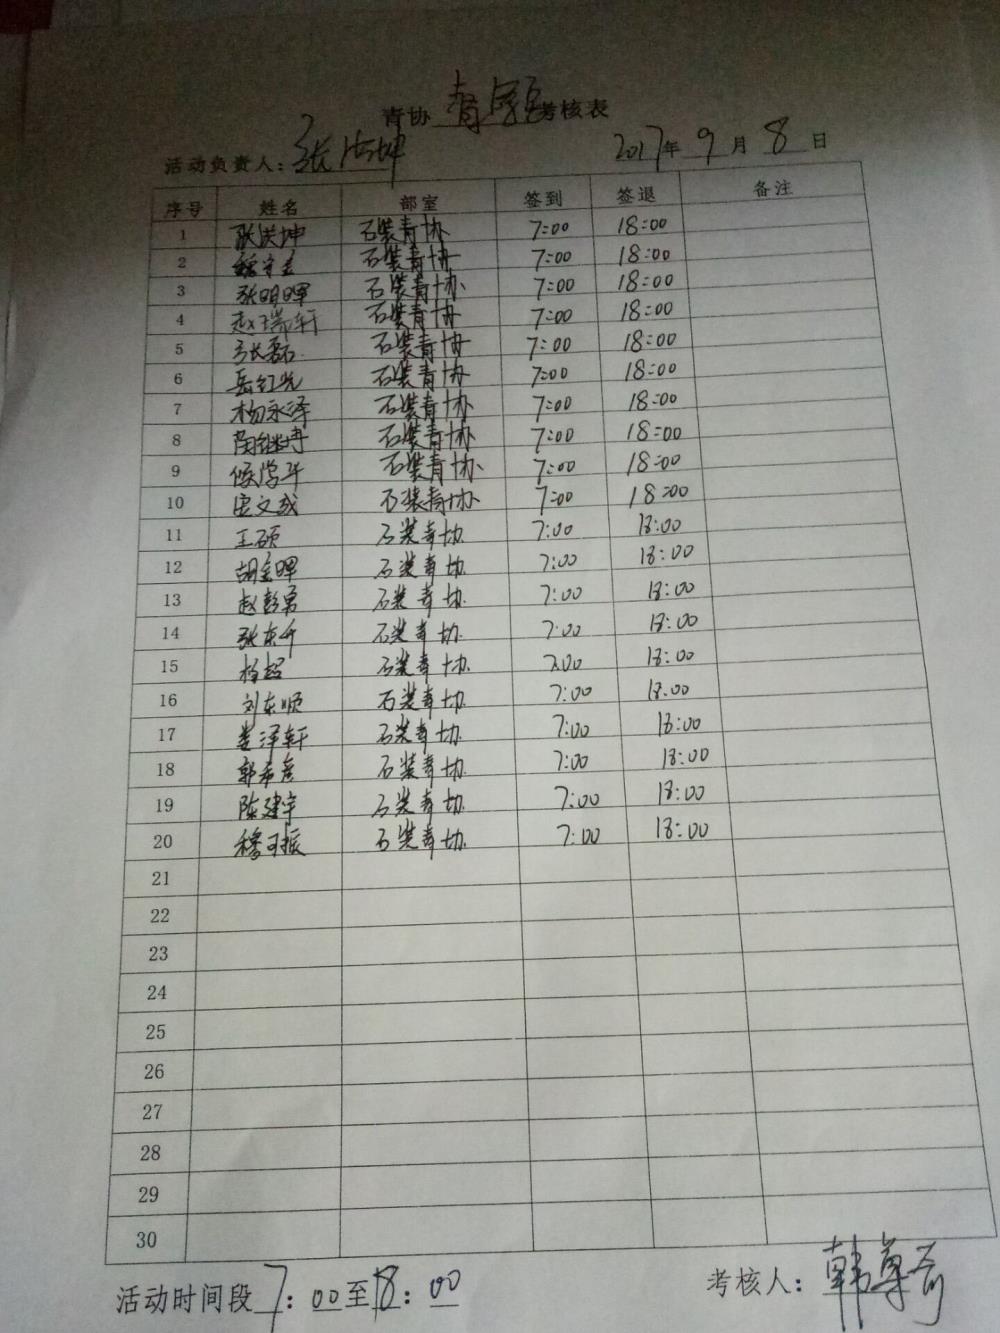 青协 考核表
活动负责人：张洪坤 2017年 9 月 8 日
序号 姓名 部室 签到 签退 备注
1 张洪坤 石装青协 7:00 18:00
2 石装青协 7:00 18:00
3 张明晖 石装青协 7:00 18:00
4 赵瑞轩 石装青协 7:00 18:00
5 张磊 石装青协 7:00 18:00
6 岳红光 石装青协 7:00 18:00
7 杨永泽 石装青协 7:00 18:00
8 石装青协 7:00 18:00
9 侯学平 石装青协 7:00 18:00
10 石装青协 7:00 18:00
11 王硕 石装青协 7:00 18:00
12 胡金晖 石装青协 7:00 18:00
13 赵彭勇 石装青协 7:00 18:00
14 张东升 石装青协 7:00 18:00
15 杨超 石装青协 7:00 18:00
16 刘东顺 石装青协 7:00 18:00
17 娄泽轩 石装青协 7:00 18:00
18 郭希彦 石装青协 7:00 18:00
19 陈建宇 石装青协 7:00 18:00
20 穆可振 石装青协 7:00 18:00
21
22
23
24
25
26
27
28
29
30
活动时间段 7：00至18：00 考核人：韩尊奇